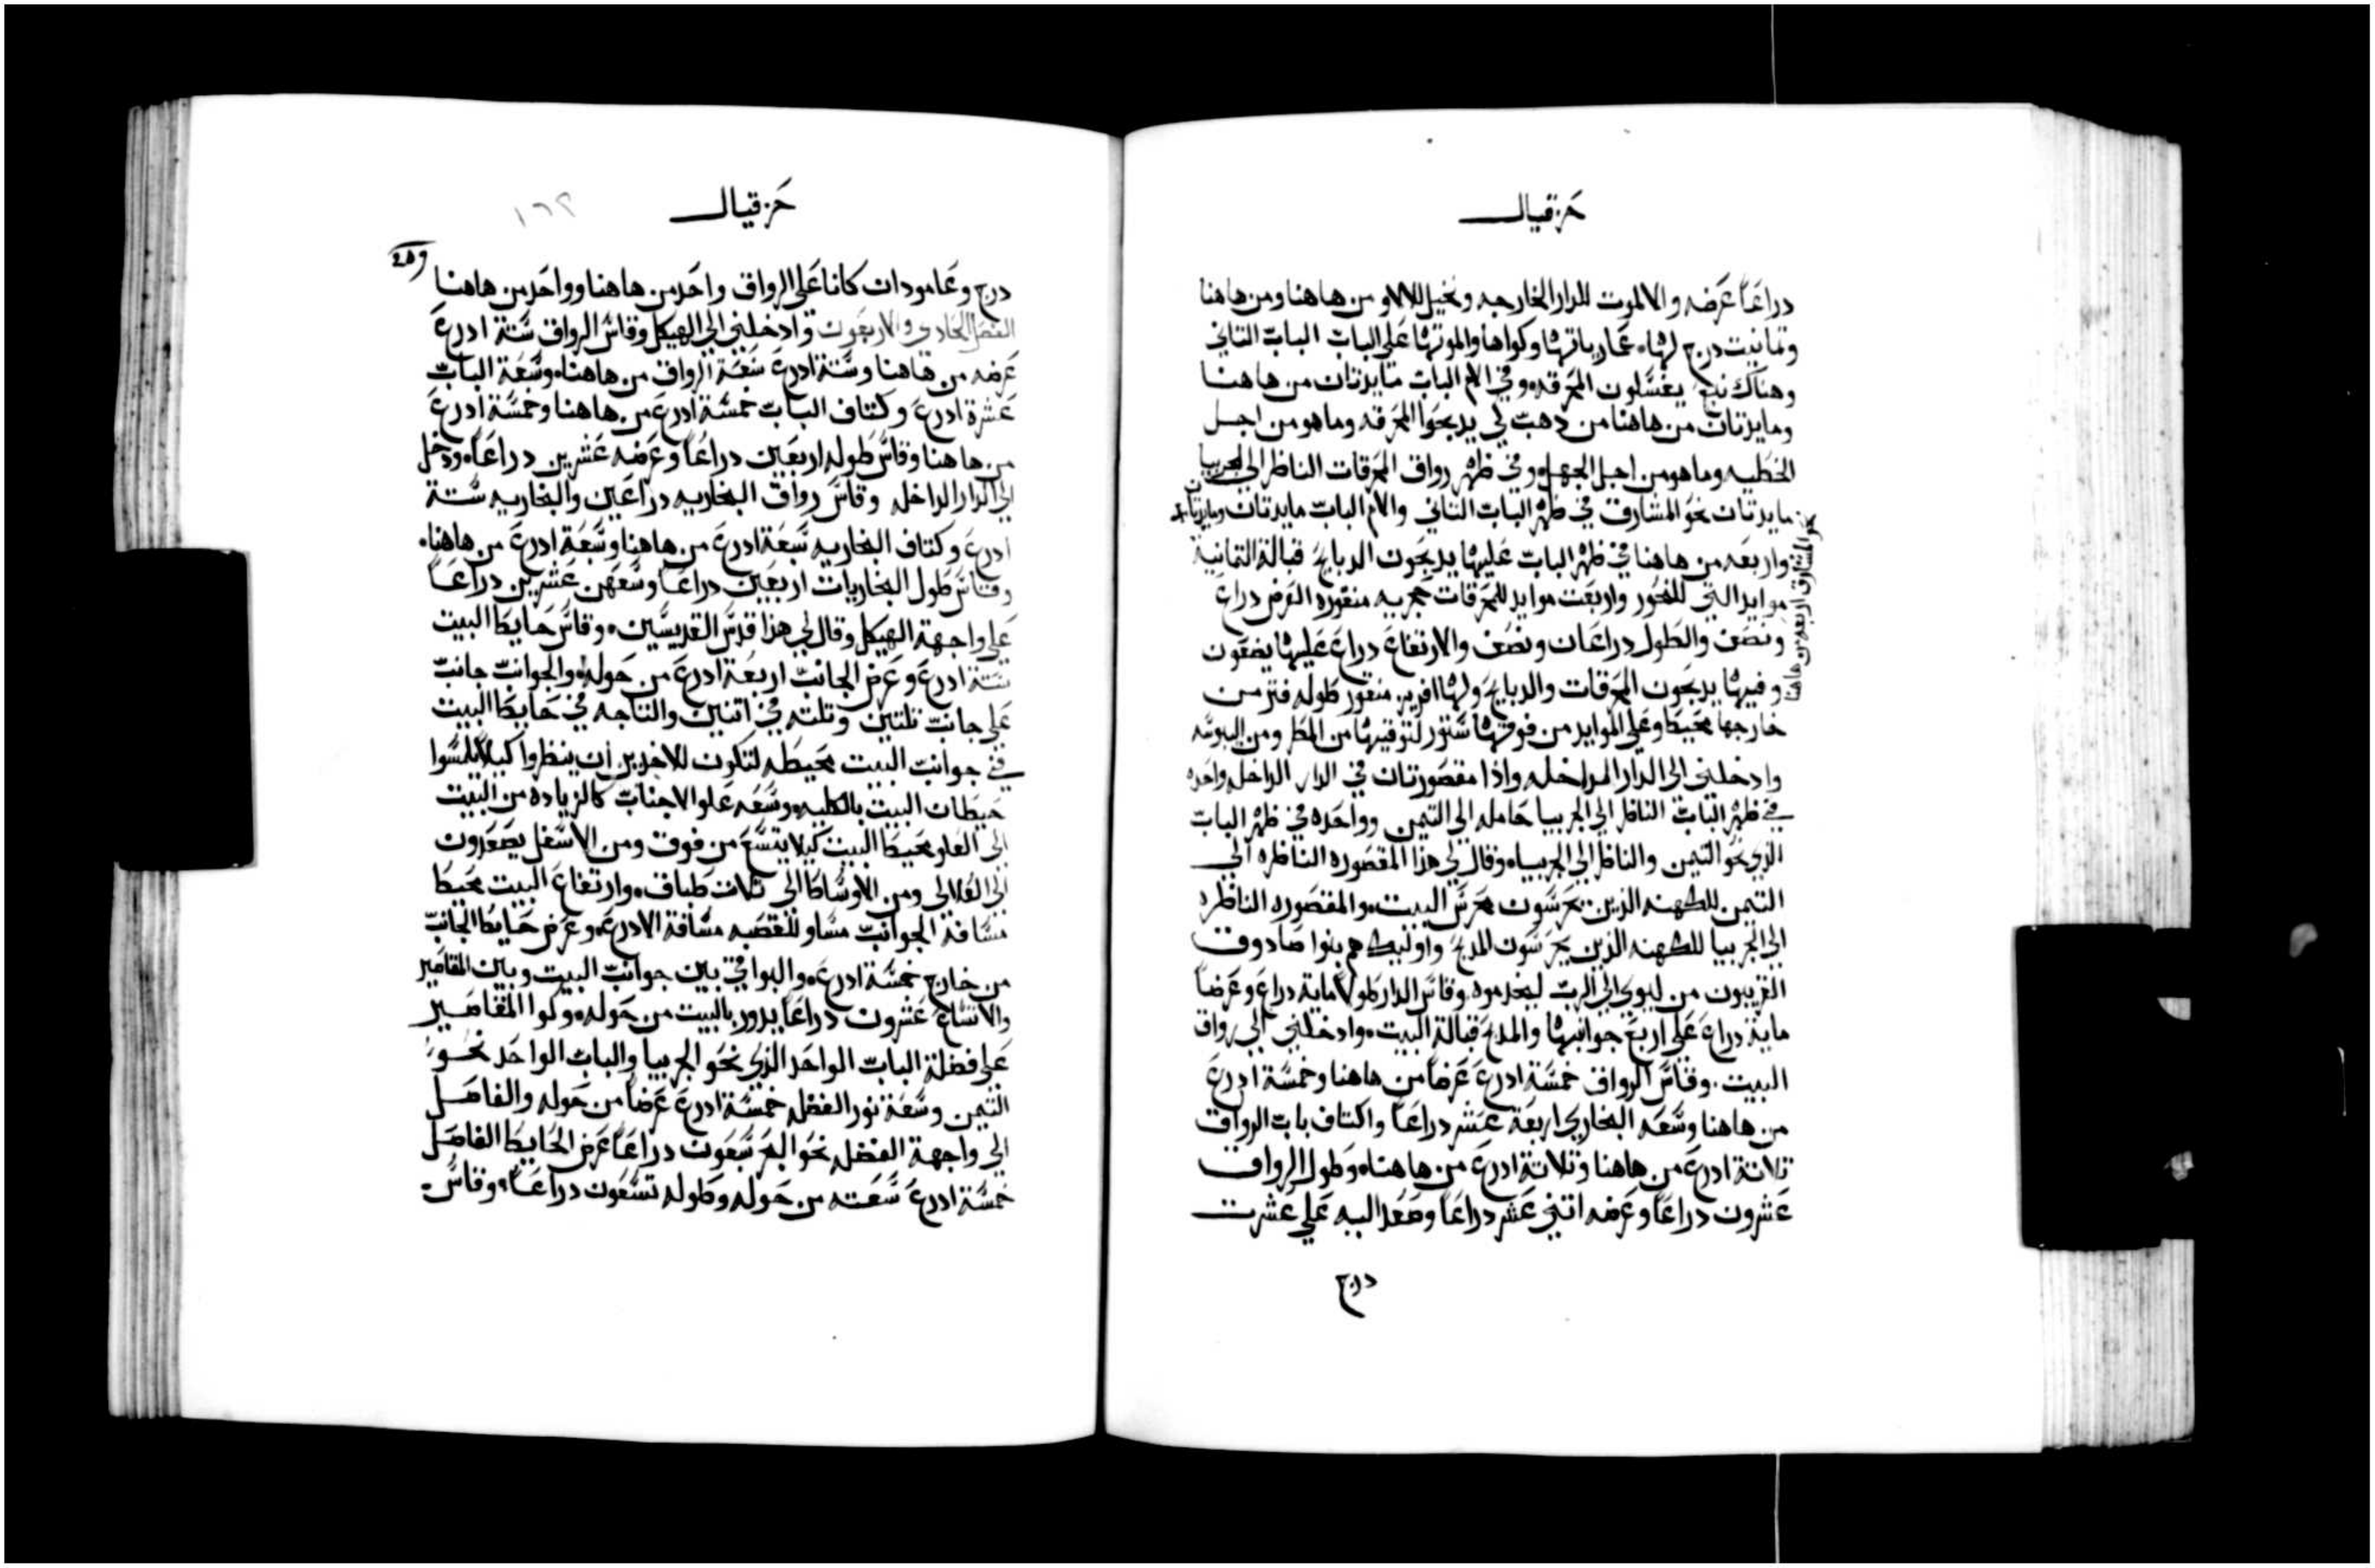 حزقيال
دراعاً عرضه والالموت للدار الخارجه ونخيل للالاو من هاهنا ومن هاهنا
وتمانيت درج لها عمارياتها وكواها والموتها على الباب الباب التاني
وهناك نبع يغسلون المحرقه وفي الام الباب مايدتان من هاهنا
ومايدتان من هاهنا من دهب لي يدبحوا المحرقه وما هو من اجل
الخطيه وما هو من اجل الجهل وفي ظهر رواق المحرقات الناظر الى الجربيا
مايدتان نحو المشارق في ظهر الباب التاني والام الباب مايدتان ومايدتان
نحو المشارق اربعه من هاهنا
واربعه من هاهنا في ظهر الباب عليها يدبحون الدبايح قبالة التمانية
موايد التي للنحور واربعت موايد للمحرقات حجريه منقوره العرض دراع
ونصف والطول دراعان ونصف والارتفاع دراع عليها يضعون
وفيها يدبحون المحرقات والدبايح ولها افريز منقور طوله فتر من
خارجها محيط وعلى الموايد من فوقها ستور لتوقيها من المطر ومن اليبوسه
وادخلني الى الدار الداخله واذا مقصورتان في الدار الداخله واحده
في ظهر الباب الناظر الى الجربيا حامله الى التيمن وواحده في ظهر الباب
الذي نحو التيمن والناظر الى الجربيا وقال لي هذا المقصوره الناظره الى
التيمن للكهنه الذين يحرسون محرس البيت والمقصوره الناظره
الى الجربيا للكهنه الذين يحرسون المدبح واوليك هم بنوا صادوق
القريبون من ليوي الى الرب ليخدموه وقاس الدار طولاً ماية دراع وعرضاً
ماية دراع على اربع جوانبها والمدبح قبالة البيت وادخلني الى رواق
البيت وقاس الرواق خمسة ادرع عرضاً من هاهنا وخمسة ادرع
من هاهنا وسعه البخاري اربعة عشر دراعاً واكتاف باب الرواق
تلاتة ادرع من هاهنا وتلاتة ادرع من هاهنا وطول الرواق
عشرون دراعاً وعرضه اتني عشر دراعاً وصعد اليه على عشرت
درج
حزقيال
١٦٢
درج وعامودان كانا على الرواق واحد من هاهنا وواحد من هاهنا
الفصل الحادي والاربعون وادخلني الى الهيكل وقاس الرواق ستة ادرع
عرضه من هاهنا وستة ادرع سعة الرواق من هاهنا وسعة الباب
عشرة ادرع وكتاف الباب خمسة ادرع من هاهنا وخمسة ادرع
من هاهنا وقاس طوله اربعين دراعاً وعرضه عشرين دراعاً ودخل
الى الدار الداخله وقاس رواق البخاريه دراعين والبخاريه ستة
ادرع وكتاف البخاريه سبعة ادرع من هاهنا وسبعة ادرع من هاهنا
وقاس طول البخاريات اربعين دراعاً وسعهن عشرين دراعاً
على واجهة الهيكل وقال لي هذا قدس القديسين وقاس حايط البيت
ستة ادرع وعرض الجانب اربعة ادرع من حوله والجوانب جانب
على جانب تلتين وتلته في اتنين والناجه في حايط البيت
في جوانب البيت محيطه لتكون للاخدين ان ينظروا كيلا يلمسوا
حيطان البيت بالكليه وسعه علو الاجناب كالزياده من البيت
الى العلو محيط البيت كيلا يتسع من فوق ومن الاسفل يصعدون
الى العلالي ومن الاوساط الى تلات طباق وارتفاع البيت محيط
مسافة الجوانب مساو للقصبه مسافة الادرع وعرض حايط الجانب
من خارج خمسة ادرع والبواقي بين جوانب البيت وبين المقاصير
والاتساع عشرون دراعاً يدور بالبيت من حوله وكوا المقاصير
على فضلة الباب الواحد الذي نحو الجربيا والباب الواحد نحو
التيمن وسعة نور الفضله خمسة ادرع عرضاً من حوله والفاصل
الى واجهة الفضله نحو البحر سبعون دراعاً عرض الحايط الفاصل
خمسة ادرع سعته من حوله وطوله تسعون دراعاً وقاس